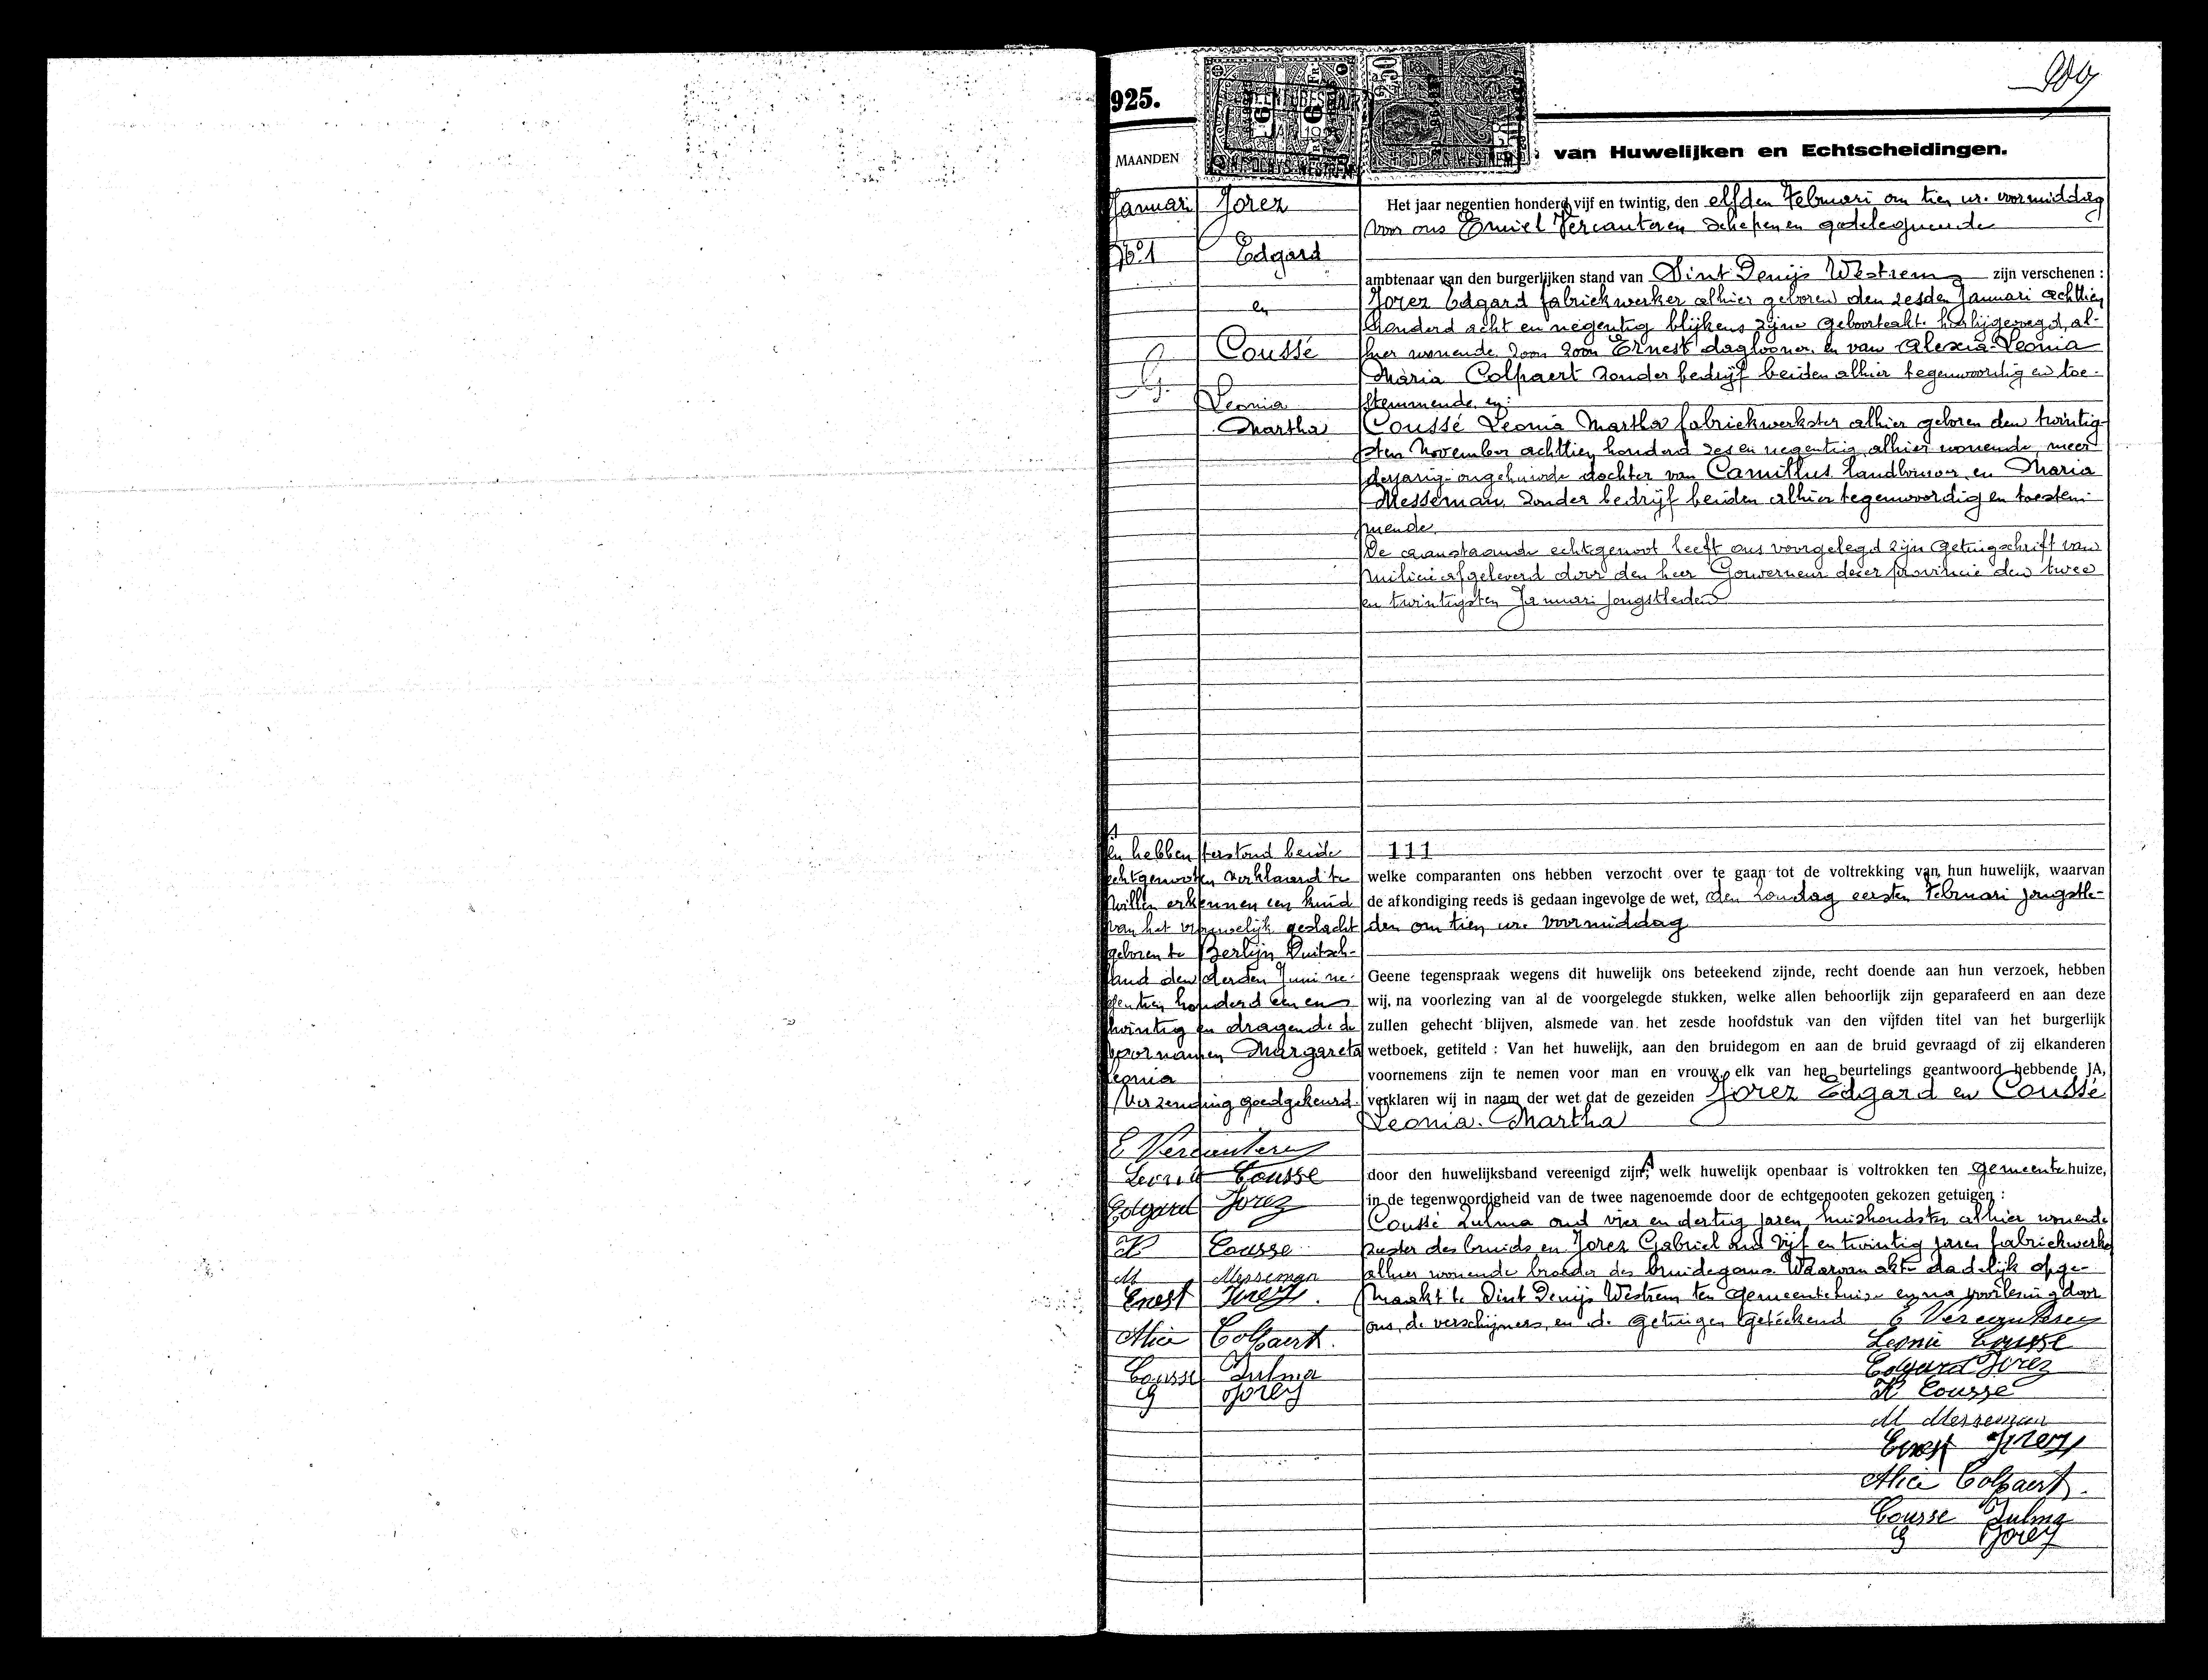 925.
MAANDEN
van Huwelijken en Echtscheidingen.
Januari
No. 1
Jorez
Edgard
en
Coussé
Leonia
Martha
Het jaar negentien honderd vijf en twintig, den elfden Februari om tien ur. voormiddag
voor ons Emiel Vercauteren Schepen en gedelegueerde
ambtenaar van den burgerlijken stand van Sint Denijs Westrem zijn verschenen :
Jorez Edgard fabriekwerker alhier geboren den zesden Januari achttien
honderd acht en negentig blijkens zijne geboorteakt. hierbijgevoegd, al-
hier wonende zoon zoon Ernest daglooner, en van Alexia-Leonia
Maria Colpaert zonder bedrijf beiden alhier tegenwoordig en toe-
stemmende, en:
Coussé Leonia Martha fabriekwerkster alhier geboren den twintig-
sten November achttien honderd zes en negentig, alhier wonende, meer-
derjarig-ongehuwde dochter van Camillus landbouwer, en Maria
Messeman, zonder bedrijf beiden alhier tegenwoordig en toestem-
mende.
De aanstaande echtgenoot heeft ons voorgelegd zijn getuigschrift van
militie afgeleverd door den heer Gouverneur dezer provincie den twee
en twintigsten Januari jongstleden
111
welke comparanten ons hebben verzocht over te gaan tot de voltrekking van hun huwelijk, waarvan
de afkondiging reeds is gedaan ingevolge de wet, den Zondag eersten Februari jongstle-
den om tien ur. voormiddag
Geene tegenspraak wegens dit huwelijk ons beteekend zijnde, recht doende aan hun verzoek, hebben
wij, na voorlezing van al de voorgelegde stukken, welke allen behoorlijk zijn geparafeerd en aan deze
zullen gehecht blijven, alsmede van het zesde hoofdstuk van den vijfden titel van het burgerlijk
wetboek, getiteld : Van het huwelijk, aan den bruidegom en aan de bruid gevraagd of zij elkanderen
voornemens zijn te nemen voor man en vrouw, elk van hen beurtelings geantwoord hebbende JA,
verklaren wij in naam der wet dat de gezeiden Jorez Edgard en Coussé
Leonia-Martha
door den huwelijksband vereenigd zijn; welk huwelijk openbaar is voltrokken ten gemeentehuize,
in de tegenwoordigheid van de twee nagenoemde door de echtgenooten gekozen getuigen :
Coussé Zulma oud vier en dertig jaren, huishoudster alhier wonende
zuster des bruids, en Jorez Gabriel oud vijf en twintig jaren fabriekwerker
alhier wonende broeder des bruidegoms. Waarvan akte dadelijk opge-
maakt te Sint Denijs Westrem ten gemeentehuize en na voorlezing door
ons, de verschijners, en de getuigen geteekend E Vercauteren
Leonie Cousse
Edgard Jorez
K Cousse
M Messeman
Ernest Jorez
Alice Colpaert.
Cousse Zulma
G Jorez
en hebben terstond beide
echtgenooten verklaard te
willen erkennen een kind
van het vrouwelijk geslacht
geboren te Berlijn Duitsch-
land den derden Juni ne-
gentien honderd een en
twintig en dragende de
voornamen Margareta
Leonia
Verzending goedgekeurd.
E Vercauteren
Leonie Cousse
Edgard Jorez
K Cousse
M Messeman
Ernest Jorez.
Alice Colpaert.
Cousse Zulma
G Jorez